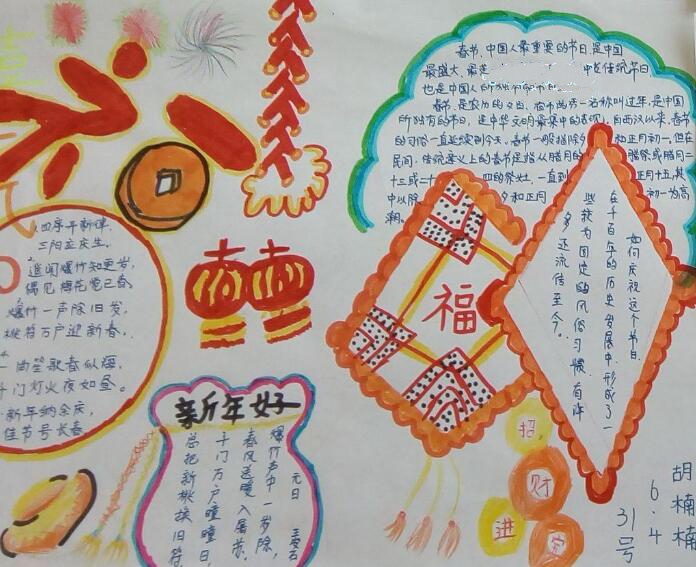 春节,中国人最重要的节日,是中国
最盛大、最
中华传统节日
也是中国人所独有的节日。
春节,是农历的
名称叫过年,是中国
所独有的节日,是中华文明最集中的表现。自西汉以来,春节
的习俗一直延续到今天。春节一般指除夕和正月初一。但在
民间,传统意义上的春节是指从腊月的
腊祭或腊月二
十三或二十四的祭灶,一直到正月十五,其
中以除夕和正月初一为高
潮。
如何庆祝这个节日,
在千百年的历史发展中,形成了一
些较为固定的风俗习惯,有许
多还流传至今。
福
招
财
进
宝
胡楠楠
6.4
31号
四序
三阳
遥闻爆竹知更岁,
偶见梅花觉已春。
爆竹一声除旧岁,
桃符万户迎新春。
笙歌春似海
千门灯火夜如昼。
新年纳余庆,
佳节号长春
新年好
元日 王安石
爆竹声中一岁除,
春风送暖入屠苏。
千门万户曈曈日,
总把新桃换旧符。